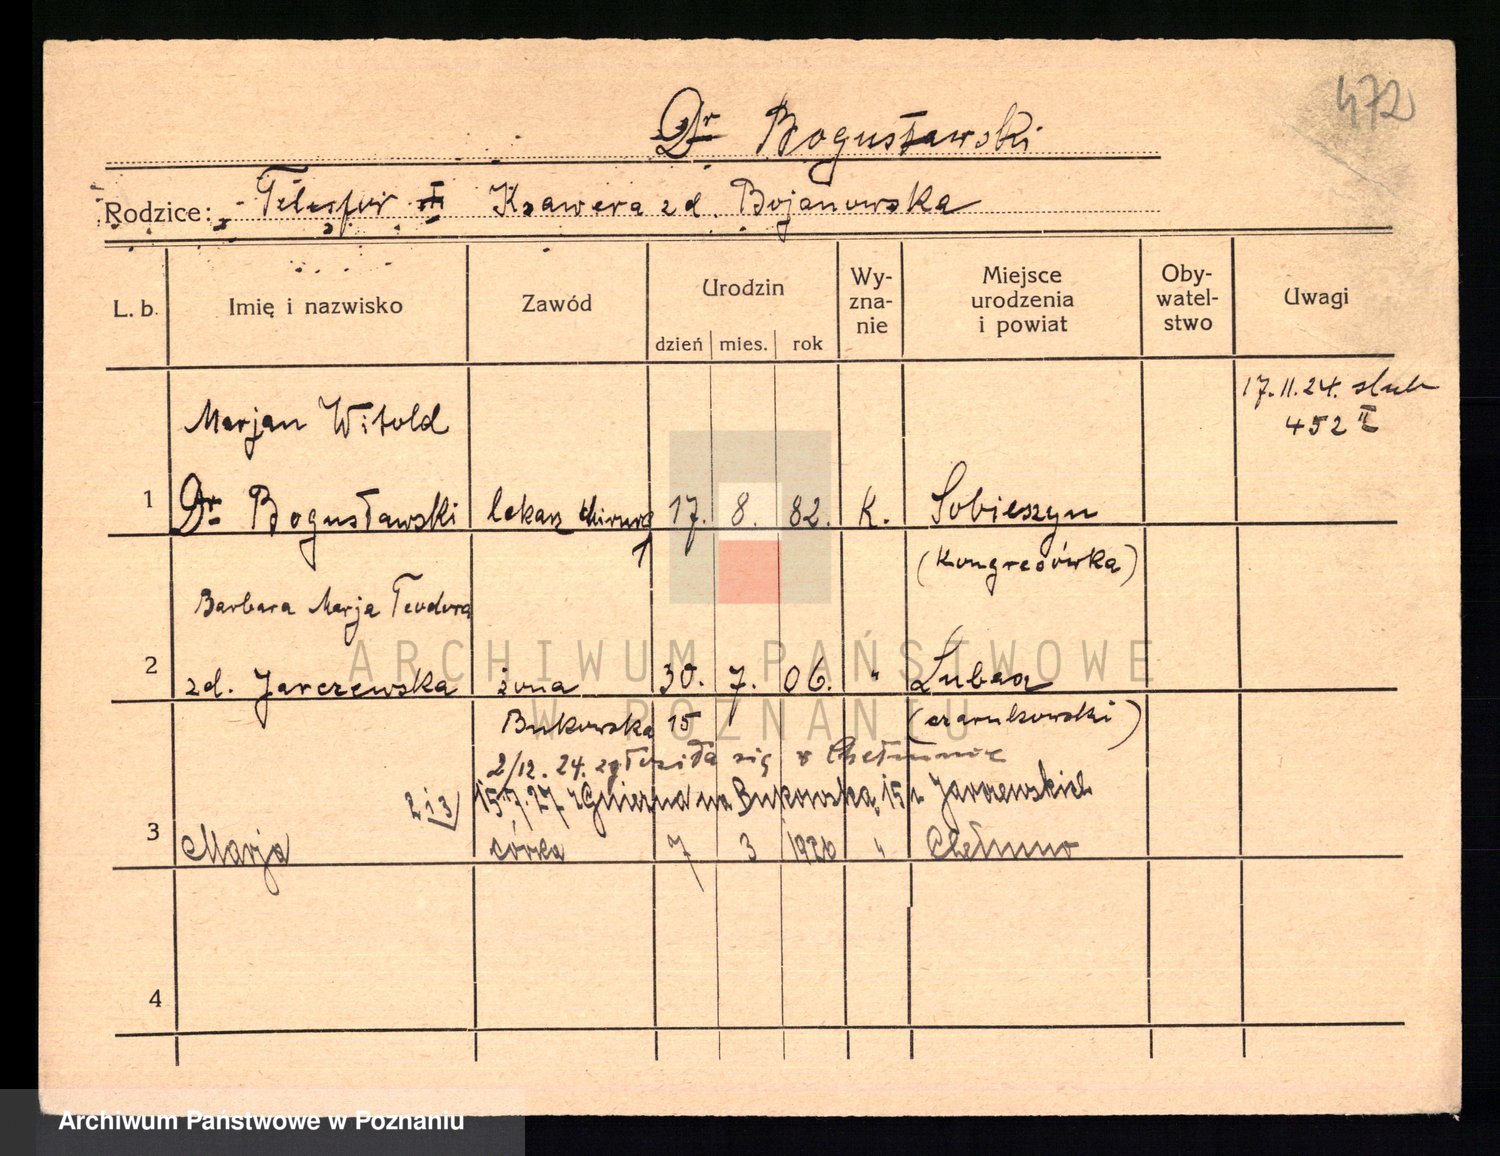 472
Dr Bogusławski
Rodzice: Telesfor i Ksawera zd. Bojanowska
L. b.
Imię i nazwisko
Zawód
Urodzin
dzień mies. rok
Wy-
zna-
nie
Miejsce
urodzenia
i powiat
Oby-
watel-
stwo
Uwagi
17.11.24. slub
452 II
Marjan Witold
1 Dr Bogusławski lekarz chirurg 17. 8. 82. K. Sobieszyn
(Kongresówka)
Barbara Marja Teodora
2 zd. Jarczewska żona 30. 7. 06. " Lubcz
Bukowska 15 (czarnkowski)
2/12. 24. zgłosiła się w Chełmnie
2 i 3/ 15.7.27 z Gniezna na Bukowską 15 u Jarczewskich
3 Marja córka 7 3 1926 " Chełmno
4
ARCHIWUM PAŃSTWOWE
W POZNANIU
Archiwum Państwowe w Poznaniu